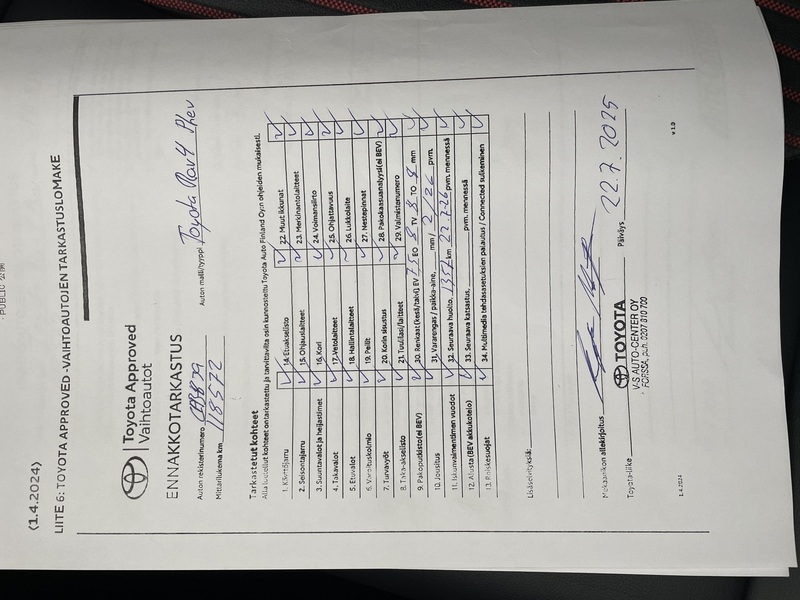 (1.4.2024)
LIITE 6: TOYOTA APPROVED -VAIHTOAUTOJEN TARKASTUSLOMAKE
Toyota Approved
Vaihtoautot
ENNAKKOTARKASTUS
Auton rekisterinumero
Auton malli/tyyppi Toyota Rav4 Phev
Mittarilukema km 118572
Tarkastetut kohteet
Alla luetellut kohteet on tarkastettu ja tarvittavilta osin kunnostettu Toyota Auto Finland Oy:n ohjeiden mukaisesti.
1. Käyttöjarru
2. Seisontajarru
3. Suuntavalot ja heijastimet
4. Takavalot
5. Etuvalot
6. Varoituskolmio
7. Turvavyöt
8. Taka-akselisto
9. Pakoputkisto(ei BEV)
10. Jousitus
11. Iskunvaimentimen vuodot
12. Alusta (BEV akkukotelo)
13. Roiskesuojat
14. Etuakselisto
15. Ohjauslaitteet
16. Kori
17. Vetolaitteet
18. Hallintalaitteet
19. Peilit
20. Korin sisustus
21. Tuulilasi/laitteet
22. Muut ikkunat
23. Merkinantolaitteet
24. Voimansiirto
25. Ohjattavuus
26. Lukkolaite
27. Nestepinnat
28. Pakokaasuanalyysi(ei BEV)
29. Valmistenumero
30. Renkaat (kesä/talvi) EV 7,5 EO 8 TV 8 TO 8 mm
31. Vararengas / paikka-aine, mm / 2/26 pvm.
32. Seuraava huolto, km 22.7.26 pvm. mennessä
33. Seuraava katsastus, pvm. mennessä
34. Multimedia tehdasasetuksien palautus / Connected sulkeminen
Lisäselvityksiä:
Mekaanikon allekirjoitus
Toyota-liike
TOYOTA
V-S AUTO-CENTER OY
FORSSA, puh. 0207 810 700
Päiväys 22.7.2025
1.4.2024
v 1.0